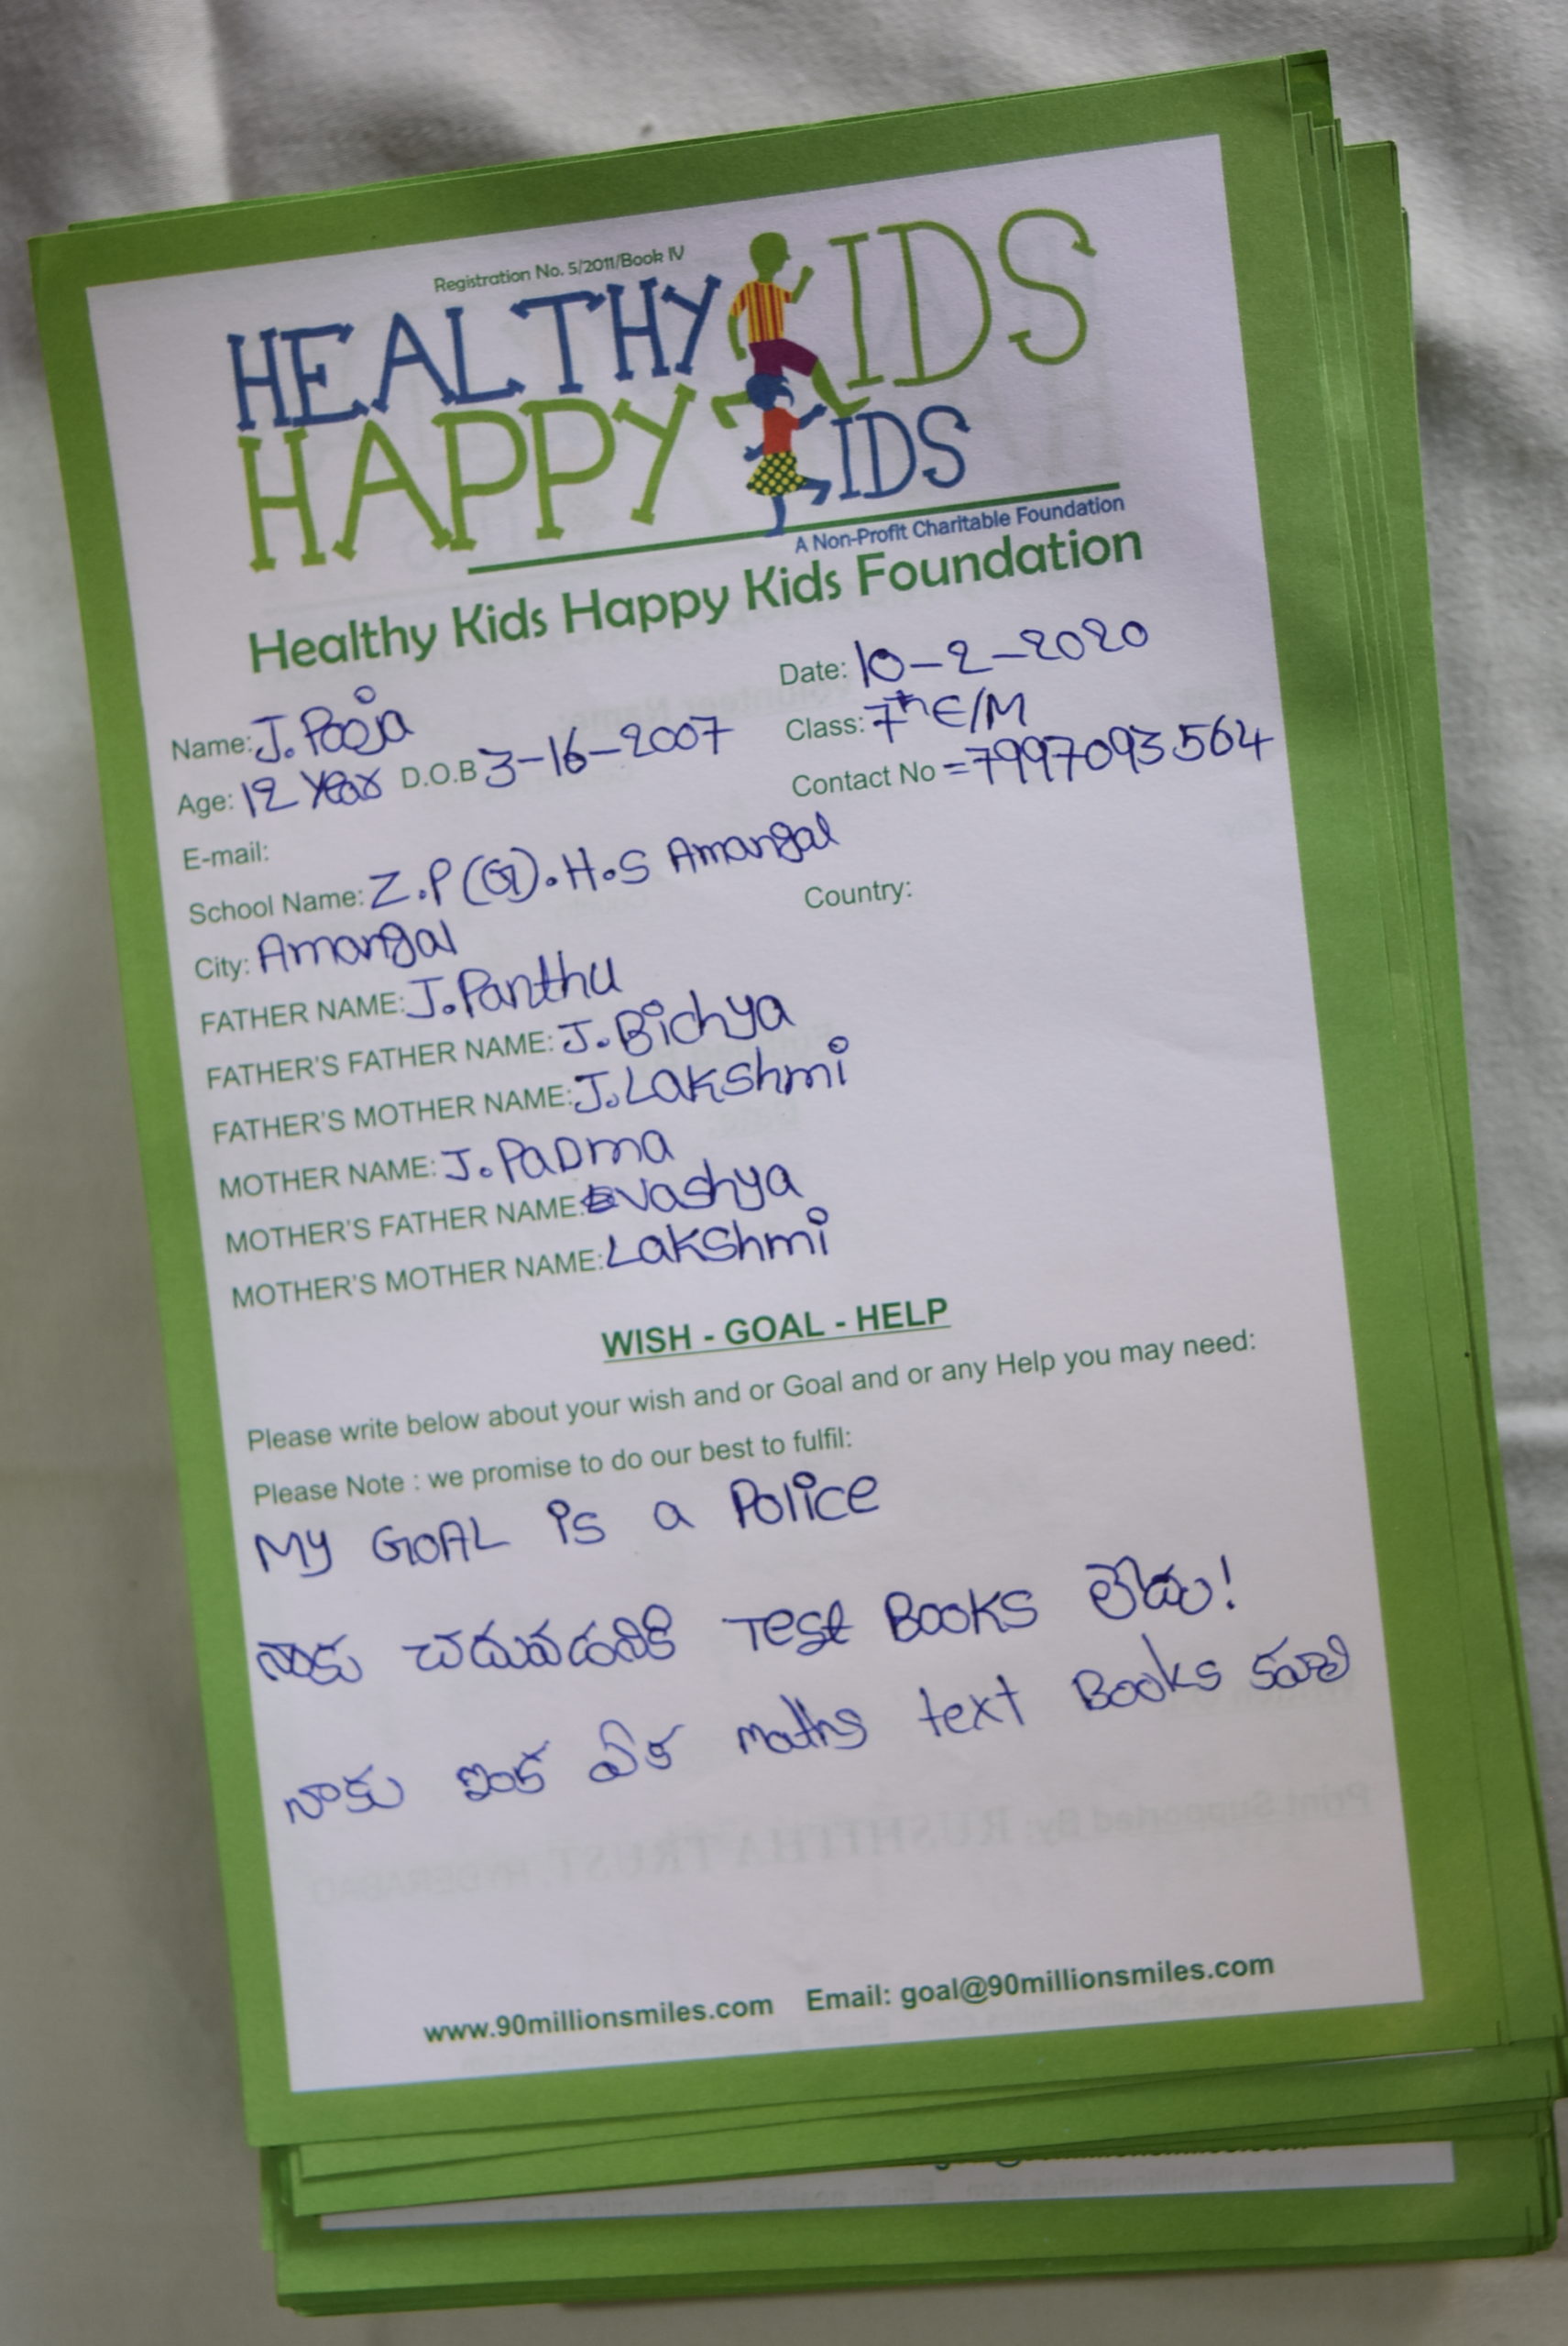 Registration No. 5/2011/Book IV
HEALTHY KIDS
HAPPY KIDS
A Non-Profit Charitable Foundation
Healthy Kids Happy Kids Foundation
Date: 10-2-2020
Name: J. Pooja
Class: 7th E/M
Age: 12 Year D.O.B 3-16-2007
Contact No = 7997093564
E-mail:
School Name: Z.P(G).H.S Amangal
Country:
City: Amangal
FATHER NAME: J. Panthu
FATHER'S FATHER NAME: J. Bichya
FATHER'S MOTHER NAME: J. Lakshmi
MOTHER NAME: J. PaDma
MOTHER'S FATHER NAME: Vashya
MOTHER'S MOTHER NAME: Lakshmi
WISH - GOAL - HELP
Please write below about your wish and or Goal and or any Help you may need:
Please Note : we promise to do our best to fulfil:
My GOAL is a Police
నాకు చదువడంనికి Test Books లేదు!
నాకు ఇంక ఏక maths text Books కావాలి
Print Supported By: RUSHITHA TRUST, HYDERABAD
www.90millionsmiles.com Email: goal@90millionsmiles.com